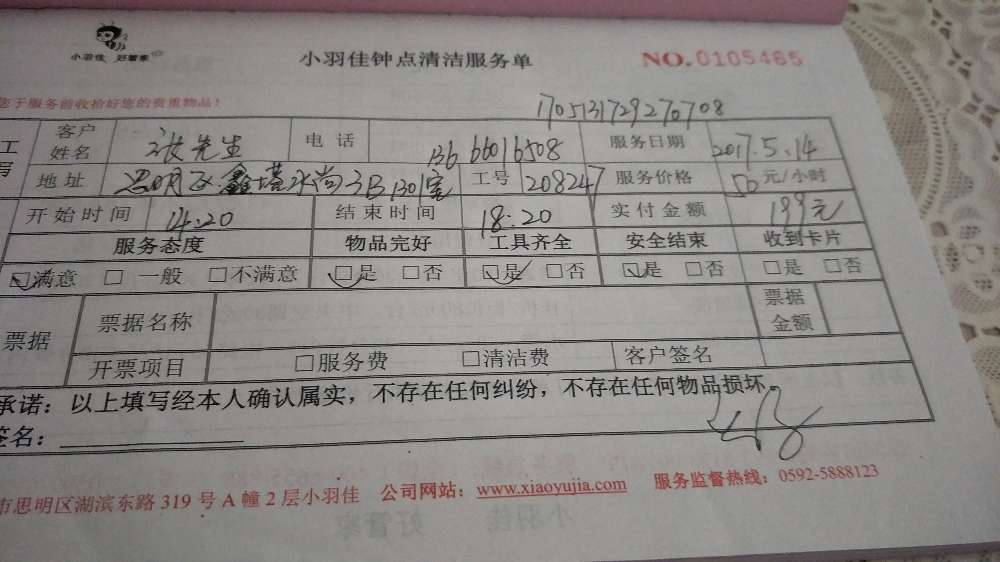 小羽佳 好管家 小羽佳钟点清洁服务单 NO.0105465
您于服务前收拾好您的贵重物品！
1705131729270708
客户姓名 张先生 电话 136 66016508 服务日期 2017.5.14
地址 思明区鑫塔水尚3B1301室 工号 208247 服务价格 50元/小时
开始时间 14:20 结束时间 18:20 实付金额 199元
服务态度 物品完好 工具齐全 安全结束 收到卡片
☑满意 □一般 □不满意 ☑是 □否 ☑是 □否 ☑是 □否 □是 □否
票据 票据名称 票据金额
开票项目 □服务费 □清洁费 客户签名
承诺：以上填写经本人确认属实，不存在任何纠纷，不存在任何物品损坏。
签名：
市思明区湖滨东路319号A幢2层小羽佳 公司网站：www.xiaoyujia.com 服务监督热线：0592-5888123